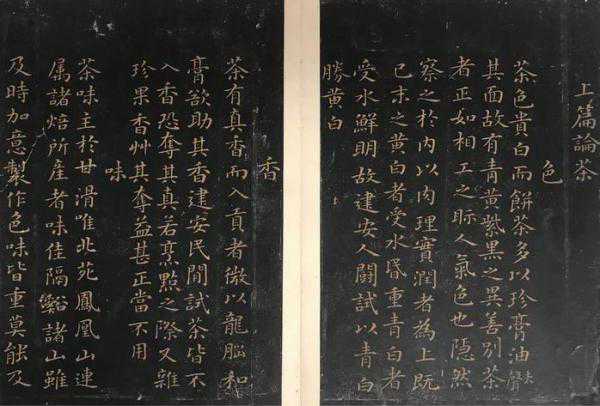 上篇論茶
色
茶色貴白而餅茶多以珍膏油去聲
其面故有青黃紫黑之異善別茶
者正如相工之眎人氣色也隱然
察之於內以肉理實潤者為上既
已末之黃白者受水昬重青白者
受水鮮明故建安人鬭試以青白
勝黃白
香
茶有真香而入貢者微以龍腦和
膏欲助其香建安民間試茶皆不
入香恐奪其真若烹點之際又雜
珍果香艸其奪益甚正當不用
味
茶味主於甘滑唯北苑鳳凰山連
屬諸焙所產者味佳隔谿諸山雖
及時加意製作色味皆重莫能及